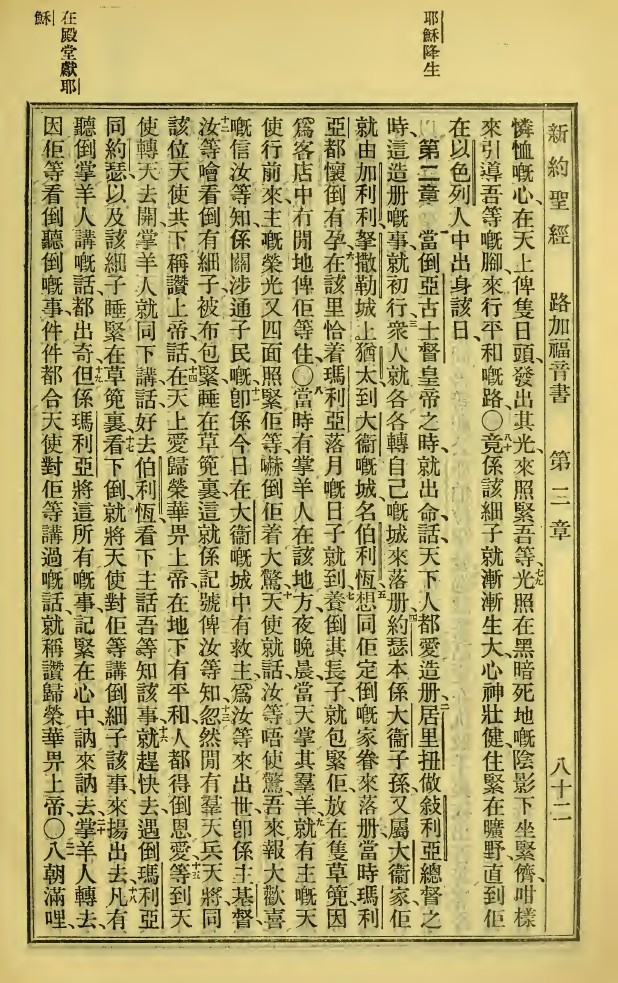 新約聖經 路加福音書 第二章 八十二
耶穌降生
在殿堂獻耶
穌
憐恤嘅心、在天上俾隻日頭發出其光、來照緊吾等、七九光照在黑暗死地嘅陰影下坐緊儕、咁樣
來引導吾等嘅腳、來行平和嘅路、〇八十竟係該細子就漸漸生大、心神壯健、住緊在曠野、直到佢
在以色列人中出身該日、
第二章 一當倒亞古士督皇帝之時、就出命話、天下人都愛造册、二居里扭做敍利亞總督之
時、這造册嘅事就初行、三衆人就各各轉自己嘅城來落册、四約瑟本係大衞子孫、又屬大衞家、佢
就由加利利、拏撒勒城、上猶太到大衞嘅城、名伯利恆、五想同佢定倒嘅家眷來落册、當時瑪利
亞都懷倒有孕、六在該里恰着瑪利亞落月嘅日子就到、七養倒其長子、就包緊佢、放在隻草篼、因
爲客店中冇閒地俾佢等住、〇八當時有掌羊人在該地方、夜晚晨、當天掌其羣羊、九就有主嘅天
使行前來、主嘅榮光又四面照緊佢等、嚇倒佢着大驚、十天使就話、汝等唔使驚、吾來報大歡喜
嘅信汝等知、係關涉通子民嘅、十一卽係今日在大衞嘅城中、有救主爲汝等來出世、卽係主基督、
十二汝等噲看倒有細子被布包緊睡在草篼裏、這就係記號俾汝等知、十三忽然間有羣天兵天將、同
該位天使、共下稱讚上帝話、十四在天上愛歸榮華畀上帝、在地下有平和、人都得倒恩愛、十五等到天
使轉天去開、掌羊人就同下講話、好去伯利恆看下主話吾等知該事、十六就趕快去、遇倒瑪利亞
同約瑟、以及該細子睡緊在草篼裏、十七看下倒、就將天使對佢等講倒細子該事、來揚出去、十八凡有
聽倒掌羊人講嘅話、都出奇、十九但係瑪利亞將這所有嘅事、記緊在心中、訥來訥去、二十掌羊人轉去、
因佢等看倒聽倒嘅事、件件都合天使對佢等講過嘅話、就稱讚歸榮華畀上帝、〇二一八朝滿哩、